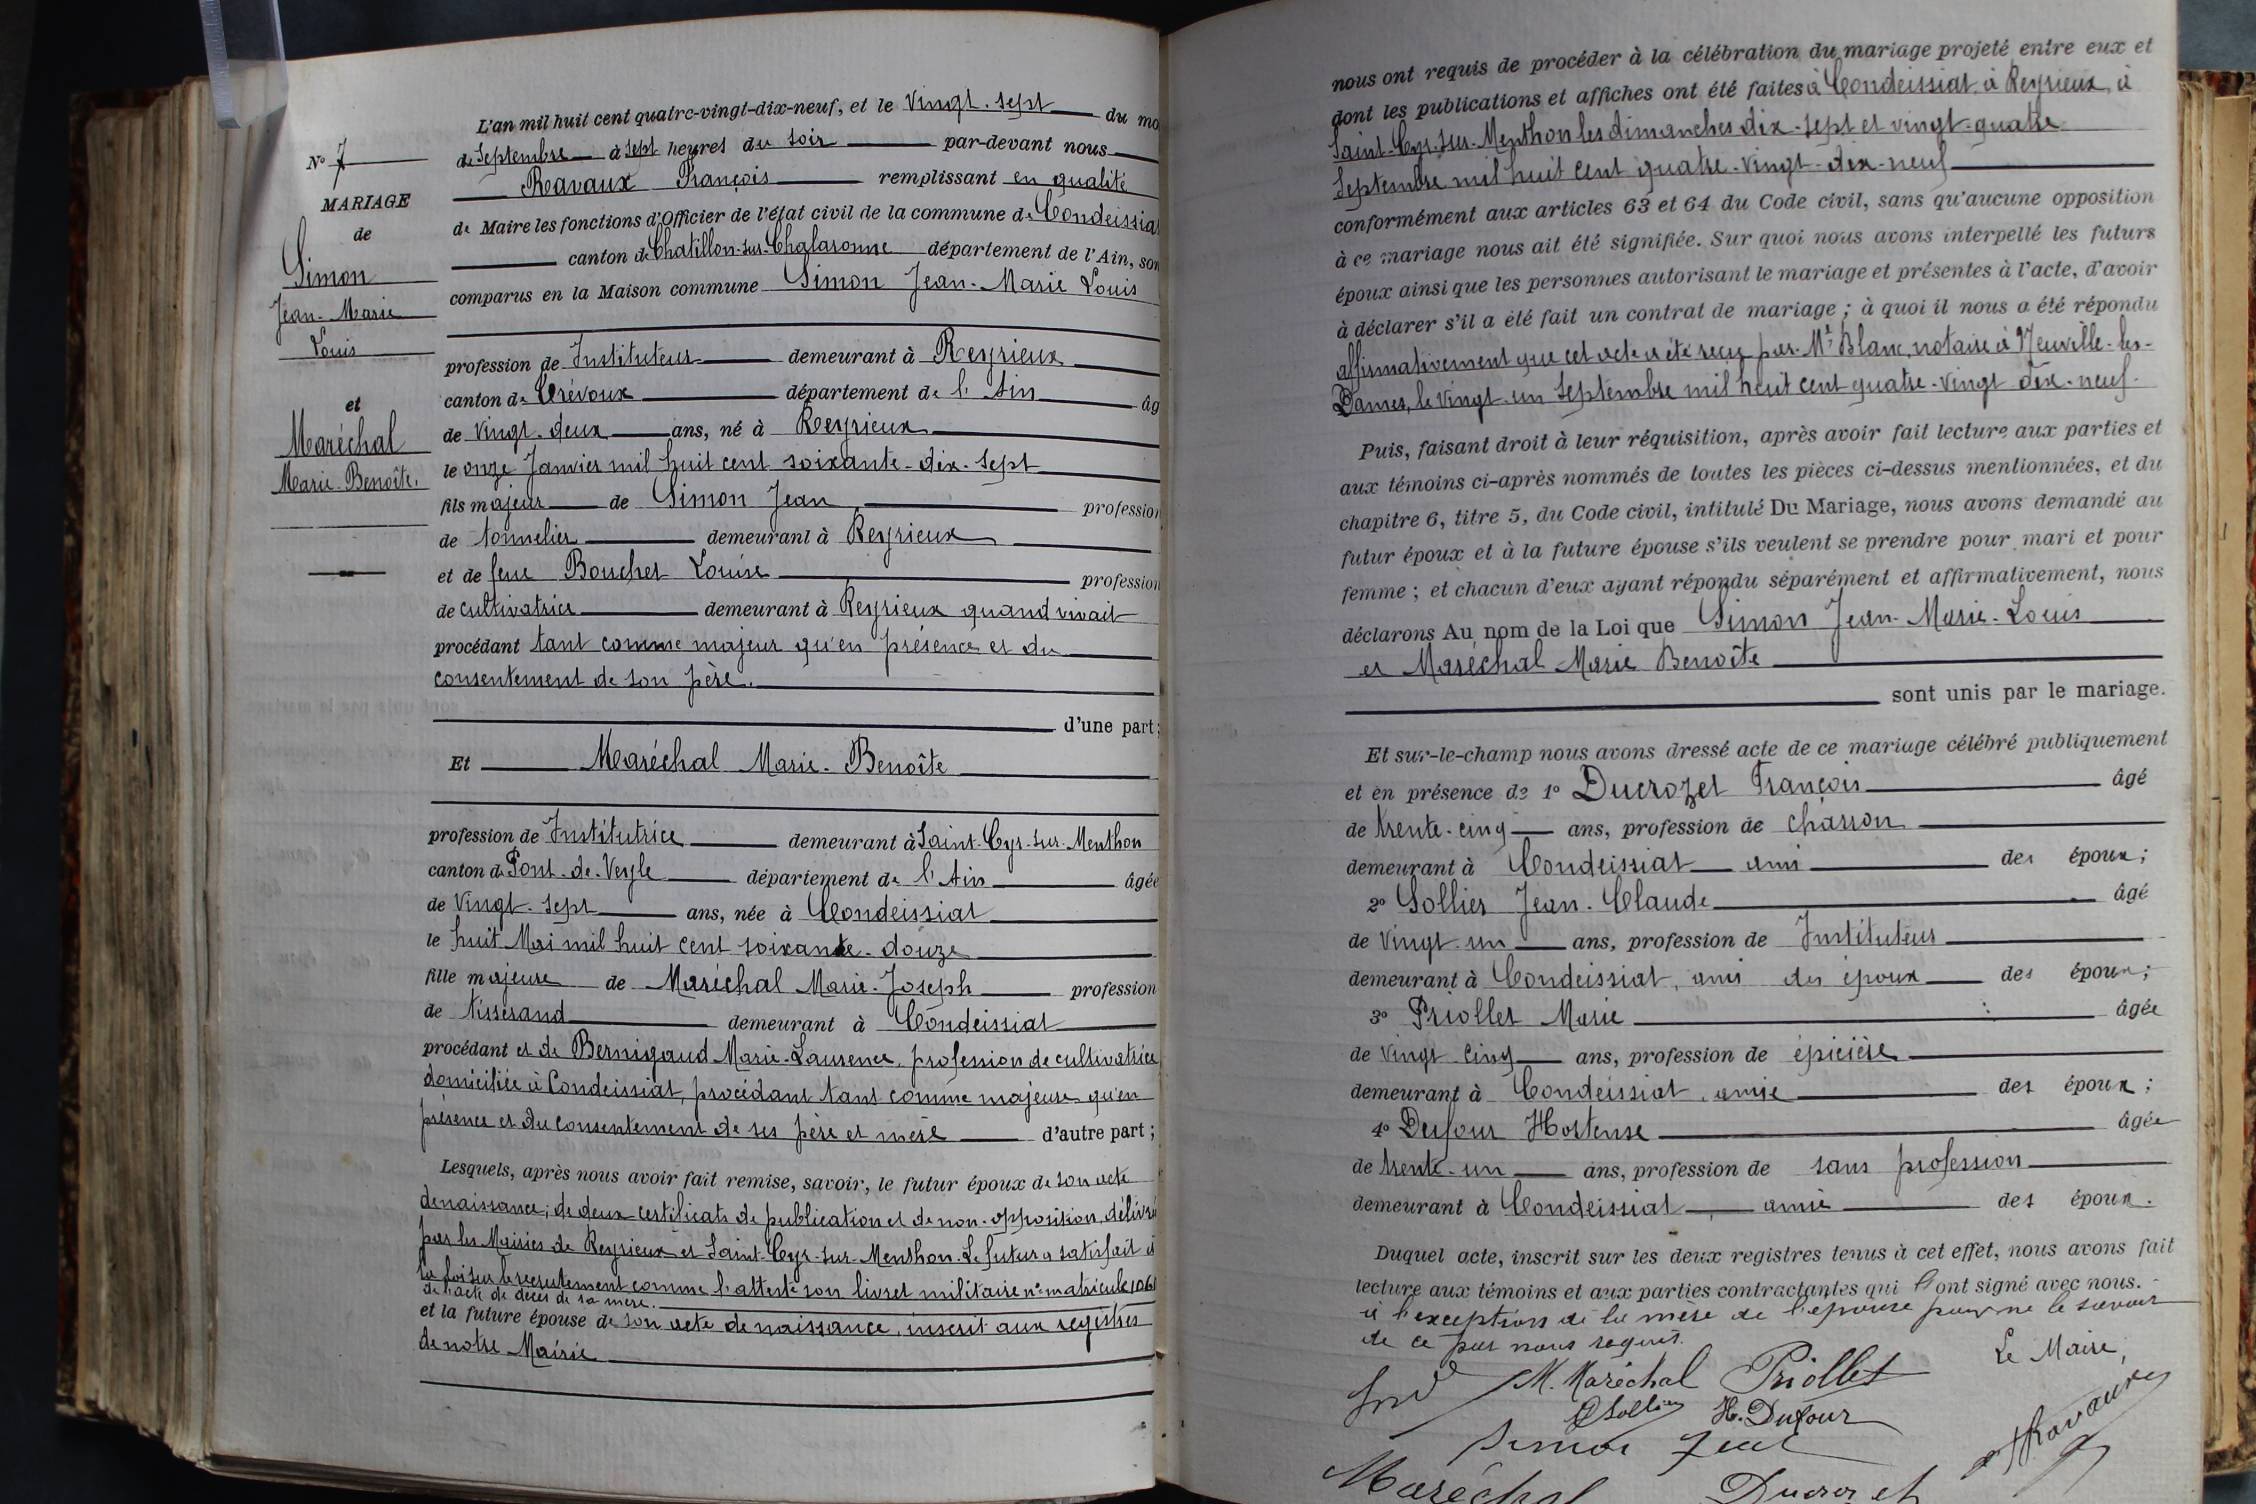 N° 7
MARIAGE
de
Simon
Jean-Marie
Louis
et
Maréchal
Marie-Benoîte.
L'an mil huit cent quatre-vingt-dix-neuf, et le vingt-sept du mo
de Septembre à sept heures du soir par-devant nous
Ravaux François remplissant en qualité
de Maire les fonctions d'Officier de l'état civil de la commune de Condeissiat
canton de Chatillon-sur-Chalaronne département de l'Ain, son
comparus en la Maison commune Simon Jean-Marie Louis
profession de Instituteur demeurant à Reyrieux
canton de Trévoux département de l'Ain âg
de vingt-deux ans, né à Reyrieux
le onze Janvier mil huit cent soixante-dix-sept
fils majeur de Simon Jean profession
de tonnelier demeurant à Reyrieux
et de feue Boucher Louise profession
de cultivatrice demeurant à Reyrieux quand vivait
procédant tant comme majeur qu'en présence et du
consentement de son père.
d'une part;
Et Maréchal Marie-Benoîte
profession de Institutrice demeurant à Saint-Cyr-sur-Menthon
canton de Pont-de-Veyle département de l'Ain âgée
de vingt-sept ans, née à Condeissiat
le huit Mai mil huit cent soixante-douze
fille majeure de Maréchal Marie-Joseph profession
de tisserand demeurant à Condeissiat
procédant et de Bernigaud Marie-Laurence, profession de cultivatrice
domiciliée à Condeissiat, procédant tant comme majeure qu'en
présence et du consentement de ses père et mère d'autre part;
Lesquels, après nous avoir fait remise, savoir, le futur époux de son acte
de naissance; de deux certificats de publication et de non-opposition, délivré
par les Mairies de Reyrieux et Saint-Cyr-sur-Menthon. Le futur a satisfait à
la loi sur le recrutement comme l'atteste son livret militaire n° matricule 1061
de l'acte de décès de sa mère.
et la future épouse de son acte de naissance, inscrit aux registres
de notre Mairie
nous ont requis de procéder à la célébration du mariage projeté entre eux et
dont les publications et affiches ont été faites à Condeissiat, à Reyrieux, à
Saint-Cyr-sur-Menthon les dimanches dix-sept et vingt-quatre
Septembre mil huit cent quatre-vingt-dix-neuf
conformément aux articles 63 et 64 du Code civil, sans qu'aucune opposition
à ce mariage nous ait été signifiée. Sur quoi nous avons interpellé les futurs
époux ainsi que les personnes autorisant le mariage et présentes à l'acte, d'avoir
à déclarer s'il a été fait un contrat de mariage; à quoi il nous a été répondu
affirmativement que cet acte a été reçu par Mt Blanc, notaire à Neuville-les-
Dames, le vingt-un Septembre mil huit cent quatre-vingt dix-neuf.
Puis, faisant droit à leur réquisition, après avoir fait lecture aux parties et
aux témoins ci-après nommés de toutes les pièces ci-dessus mentionnées, et du
chapitre 6, titre 5, du Code civil, intitulé Du Mariage, nous avons demandé au
futur époux et à la future épouse s'ils veulent se prendre pour mari et pour
femme; et chacun d'eux ayant répondu séparément et affirmativement, nous
déclarons Au nom de la Loi que Simon Jean-Marie-Louis
et Maréchal Marie Benoîte
sont unis par le mariage.
Et sur-le-champ nous avons dressé acte de ce mariage célébré publiquement
et en présence de 1° Ducrozet François âgé
de trente-cinq ans, profession de charron
demeurant à Condeissiat ami des époux;
2° Sollier Jean-Claude âgé
de vingt-un ans, profession de Instituteur
demeurant à Condeissiat, ami des époux des époux;
3° Priollet Marie âgée
de vingt cinq ans, profession de épicière
demeurant à Condeissiat, amie des époux;
4° Dufour Hortense âgée
de trente-un ans, profession de sans profession
demeurant à Condeissiat, amie des époux.
Duquel acte, inscrit sur les deux registres tenus à cet effet, nous avons fait
lecture aux témoins et aux parties contractantes qui l'ont signé avec nous.
à l'exception de la mère de l'épouse pour ne le savoir
de ce par nous requis.
Le Maire,
M. Maréchal Priollet
Sollier H. Dufour
Simon Jean
F Ravaux
Maréchal Ducrozet